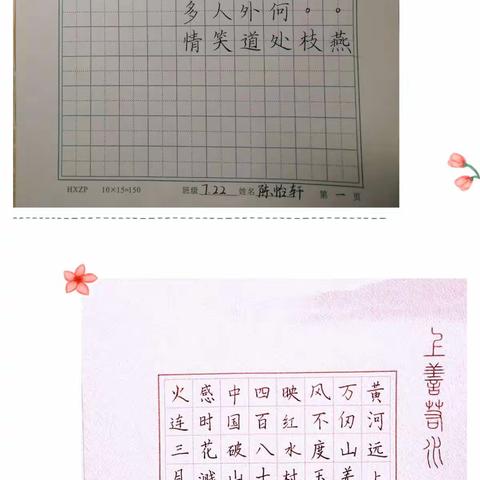 。燕
。枝
何处
外道
人笑
多情
HXZP 10×15=150 班级 7.22 姓名 陈怡轩 第 一 页
上善若水
黄河远上
万仞山羌
风不度玉
映红水村
四百八十
中国破山
感时花溅
火连三月